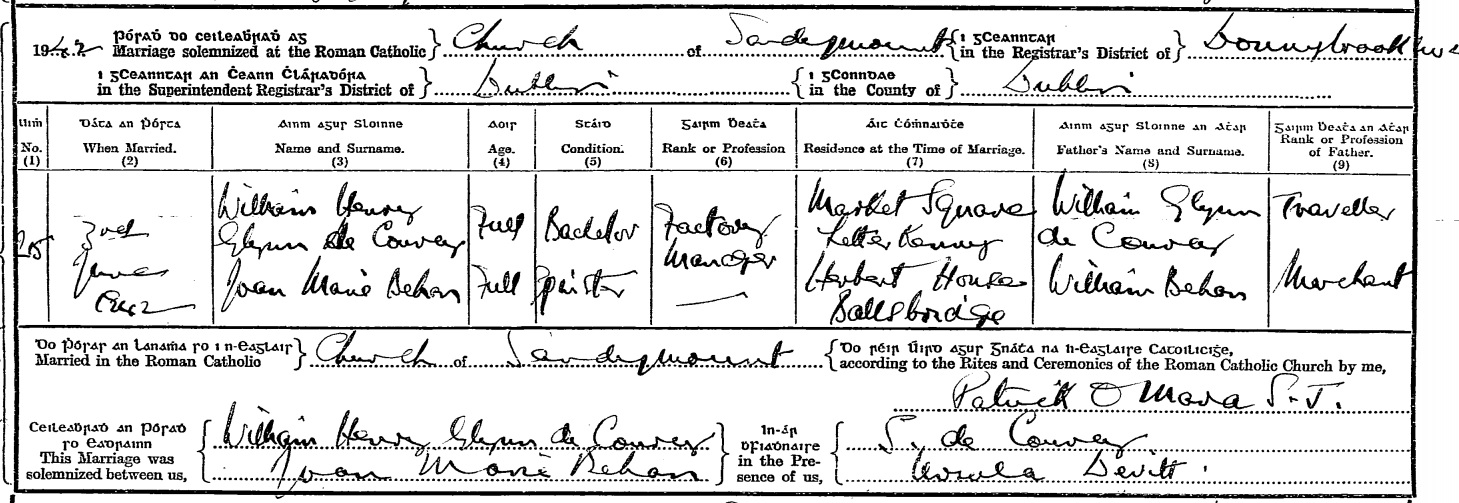 pórað do ceileabrað ag
1942 Marriage solemnized at the Roman Catholic Church of Sandymount in the Registrar's District of Donnybrook
i gCeanntar an Ċeann Ċláraḋóra i gConndae
in the Superintendent Registrar's District of Dublin in the County of Dublin
Uim Dáta an Pórta Ainm agus Sloinne Aois Stáid Gairm Beata Áit Cómnaidte Ainm agus Sloinne an Atar Gairm Beata an Atar
No. When Married. Name and Surname. Age. Condition. Rank or Profession Residence at the Time of Marriage. Father's Name and Surname. Rank or Profession of Father.
(1) (2) (3) (4) (5) (6) (7) (8) (9)
205 3rd William Henry Full Bachelor Factory Market Square William Glynn Traveller
June Glynn de Courcy Manager Letterkenny de Courcy
1942 Joan Marie Behan Full Spinster — Herbert House William Behan Merchant
Ballsbridge
Do pórad an lanama so i n-eaglais Do réir Úird agus Gnáta na h-eaglaise Catoilicige,
Married in the Roman Catholic Church of Sandymount according to the Rites and Ceremonies of the Roman Catholic Church by me,
Patrick O Mara S.J.
Ceileabrad an pórad
so eadrainn William Henry Glynn de Courcy S. de Courcy
This Marriage was in the Pre-
solemnized between us, Joan Marie Behan sence of us, Ursula Devitt